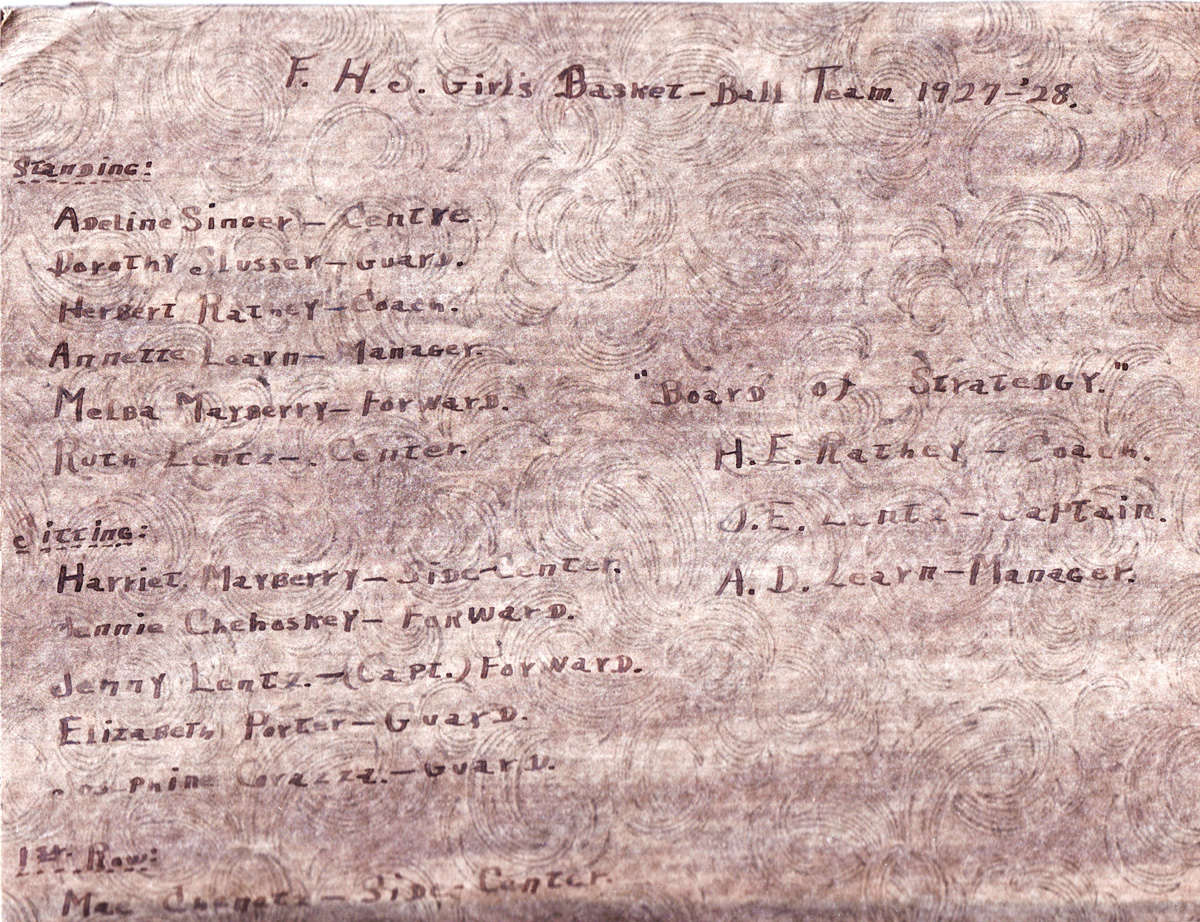 F. H. S. Girl's Basket-Ball Team. 1927-'28.
Standing:
Adeline Singer - Centre.
Dorothy Slusser - Guard.
Herbert Rathey - Coach.
Annette Learn - Manager.
Melba Mayberry - Forward.
Ruth Lentz - Center.
Sitting:
Harriet Mayberry - Side-Center.
Jennie Chehoskey - Forward.
Jenny Lentz. - (Capt.) Forward.
Elizabeth Porter - Guard.
Josephine Corazza. - Guard.
1st. Row:
Mae - Side-Center.
"Board of Stratedgy."
H. E. Rathey - Coach.
J. E. Lentz - Captain.
A. D. Learn - Manager.